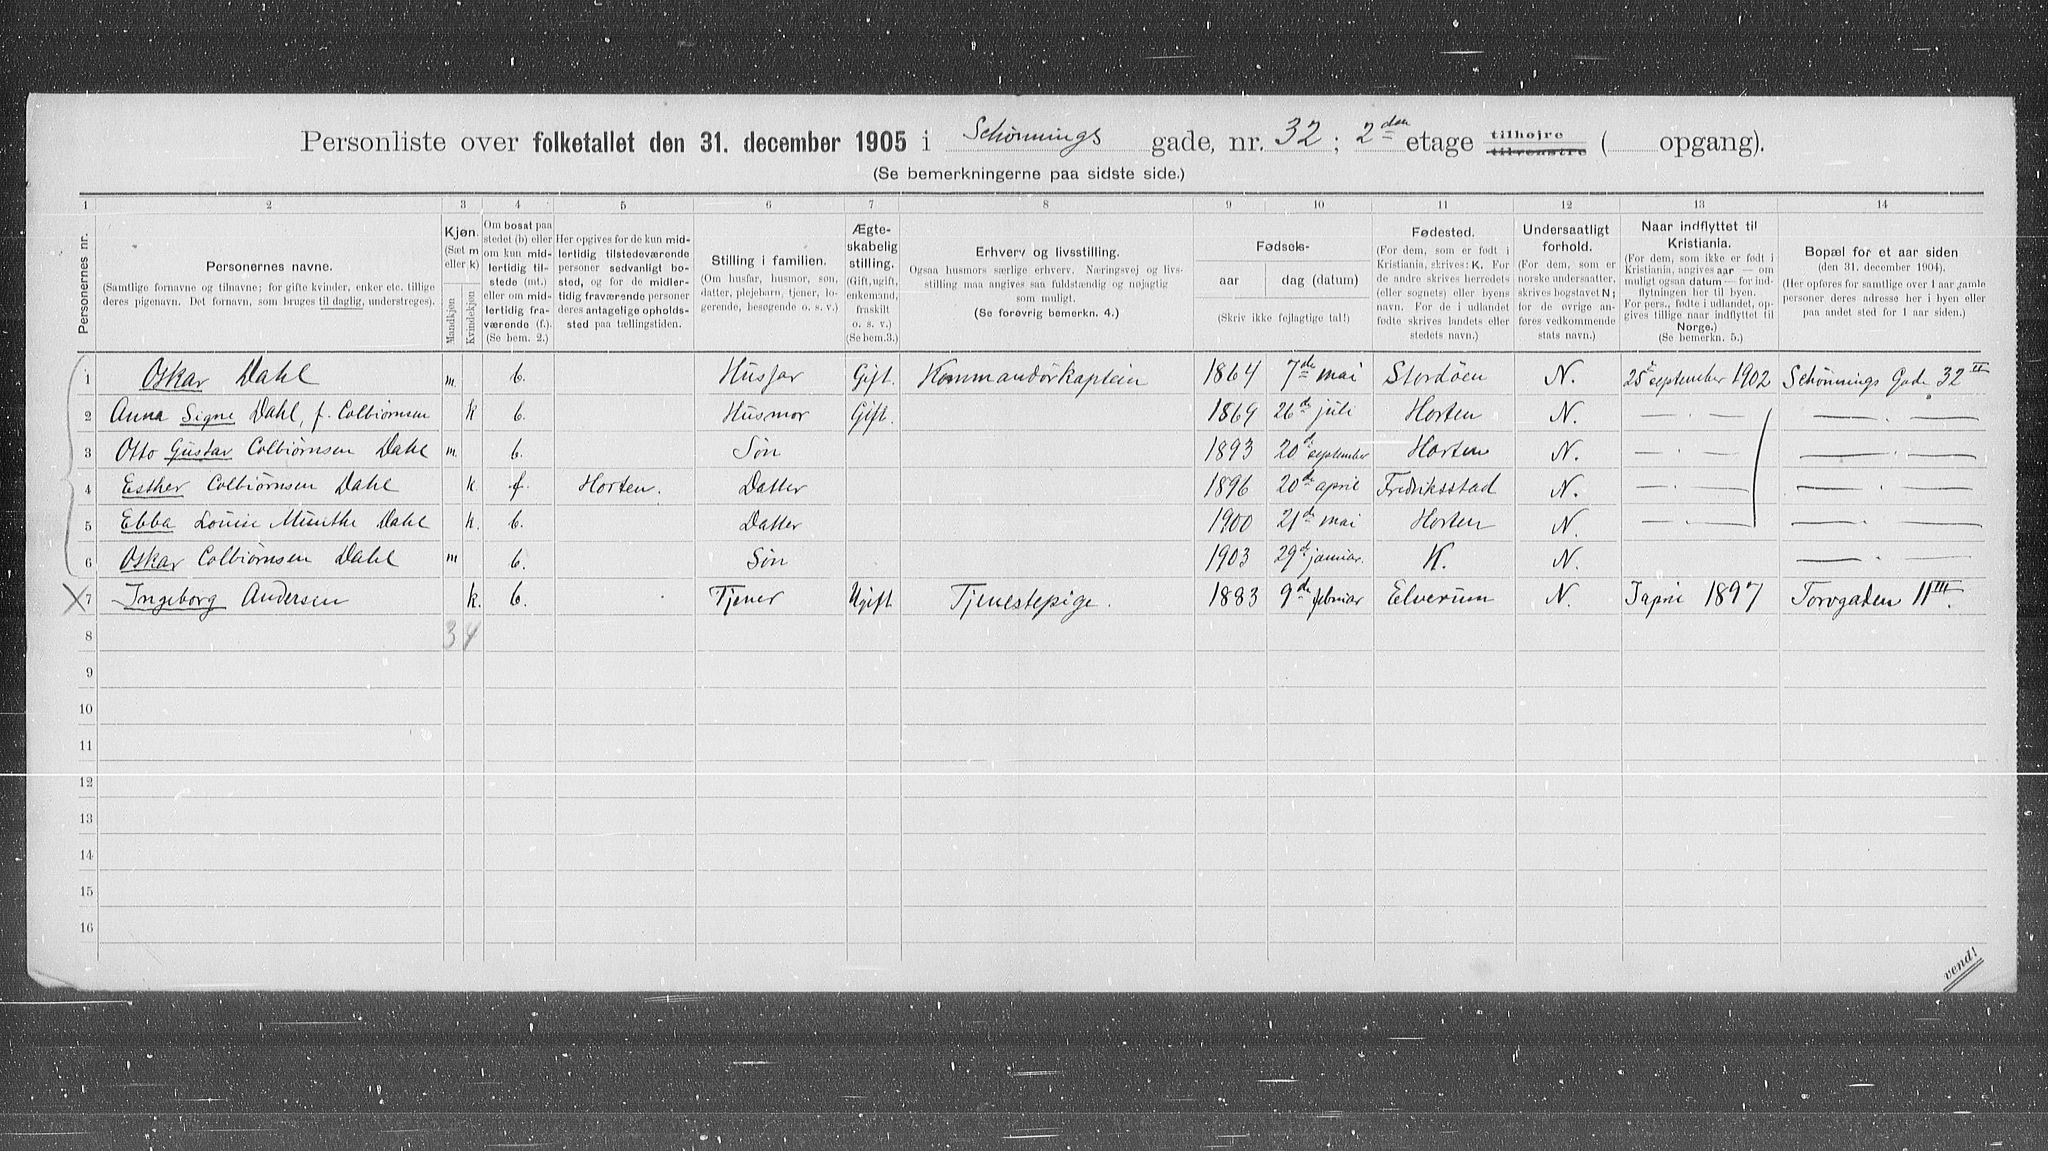 Personliste over folketallet den 31. december 1905 i Schønnings gade, nr. 32 ; 2den etage tilhøjre tilvenstre ( opgang).
(Se bemerkningerne paa sidste side.)
1 2 3 4 5 6 7 8 9 10 11 12 13 14
Personernes nr.
Personernes navne.
(Samtlige fornavne og tilnavne; for gifte kvinder, enker etc. tillige
deres pigenavn. Det fornavn, som bruges til daglig, understreges).
Kjøn.
(Sæt m
eller k)
Mandkjøn
Kvindekjøn
Om bosat paa
stedet (b) eller
om kun mid-
lertidig til-
stede (mt.)
eller om mid-
lertidig fra-
værende (f.).
(Se bem. 2.)
Her opgives for de kun mid-
lertidig tilstedeværende
personer sedvanlig bo-
sted, og for de midler-
tidig fraværende personer
deres antagelige opholds-
sted paa tællingstiden.
Stilling i familien.
(Om husfar, husmor, søn,
datter, plejebarn, tjener, lo-
gerende, besøgende o. s. v.)
Ægte-
skabelig
stilling.
(Gift, ugift,
enkemand,
fraskilt
o. s. v.)
(Se bem.3.)
Erhverv og livsstilling.
Ogsaa husmors særlige erhverv. Næringsvej og livs-
stilling maa angives saa fuldstændig og nøjagtig
som muligt.
(Se forøvrig bemerkn. 4.)
Fødsels-
aar dag (datum)
(Skriv ikke fejlagtige tal!)
Fødested.
(For dem, som er født i
Kristiania, skrives: K. For
de andre skrives herredets
(eller sognets) eller byens
navn. For de i udlandet
fødte skrives landets eller
stedets navn.)
Undersaatligt
forhold.
(For dem, som er
norske undersaatter,
skrives bogstavet N;
for de øvrige an-
føres vedkommende
stats navn.)
Naar indflyttet til
Kristiania.
(For dem, som ikke er født i
Kristiania, angives aar — om
muligt ogsaa datum — for ind-
flytningen her til byen.
For pers., fødte i udlandet, op-
gives tillige naar indflyttet til
Norge.)
(Se bemerkn. 5.)
Bopæl for et aar siden
(den 31. december 1904).
(Her opføres for samtlige over 1 aar gamle
personer deres adresse her i byen eller
paa andet sted for 1 aar siden.)
1 Oskar Dahl m. b. Husfar Gift. Kommandørkaptein 1864 7de mai Stordøen N. 25 september 1902 Schønnings Gade 32 II
2 Anna Signe Dahl, f. Colbiørnsen k b. Husmor Gift. 1869 26d juli Horten N. — . — — . —
3 Otto Gustav Colbiørnsen Dahl m. b. Søn 1893 20d september Horten N. — . — — . —
4 Esther Colbiørnsen Dahl k. f. Horten. Datter 1896 20de april Fredriksstad N. — . — — . —
5 Ebba Louise Munthe Dahl k. b. Datter 1900 21de mai Horten N. — . — — . —
6 Oskar Colbiørnsen Dahl m b. Søn 1903 29d januar. K. N. — . —
X 7 Ingeborg Andersen k. b. Tjener Ugift Tjenestepige. 1883 9de februar Elverum N. I april 1897 Torvgaden 11 III.
8 3 4
9
10
11
12
13
14
15
16
vend!